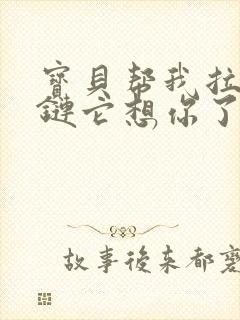 寶貝幫我拉
鏈它想你了
故事後來都